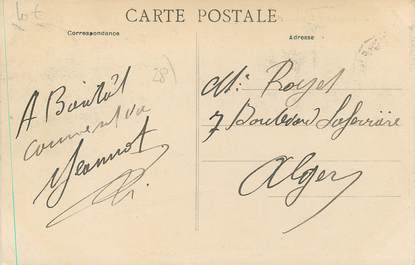 Lot
CARTE POSTALE
Correspondance
Adresse
28)
A Bientôt
comment va
Jeannot
Mr Royet
7 Boulevard Laferrière
Alger